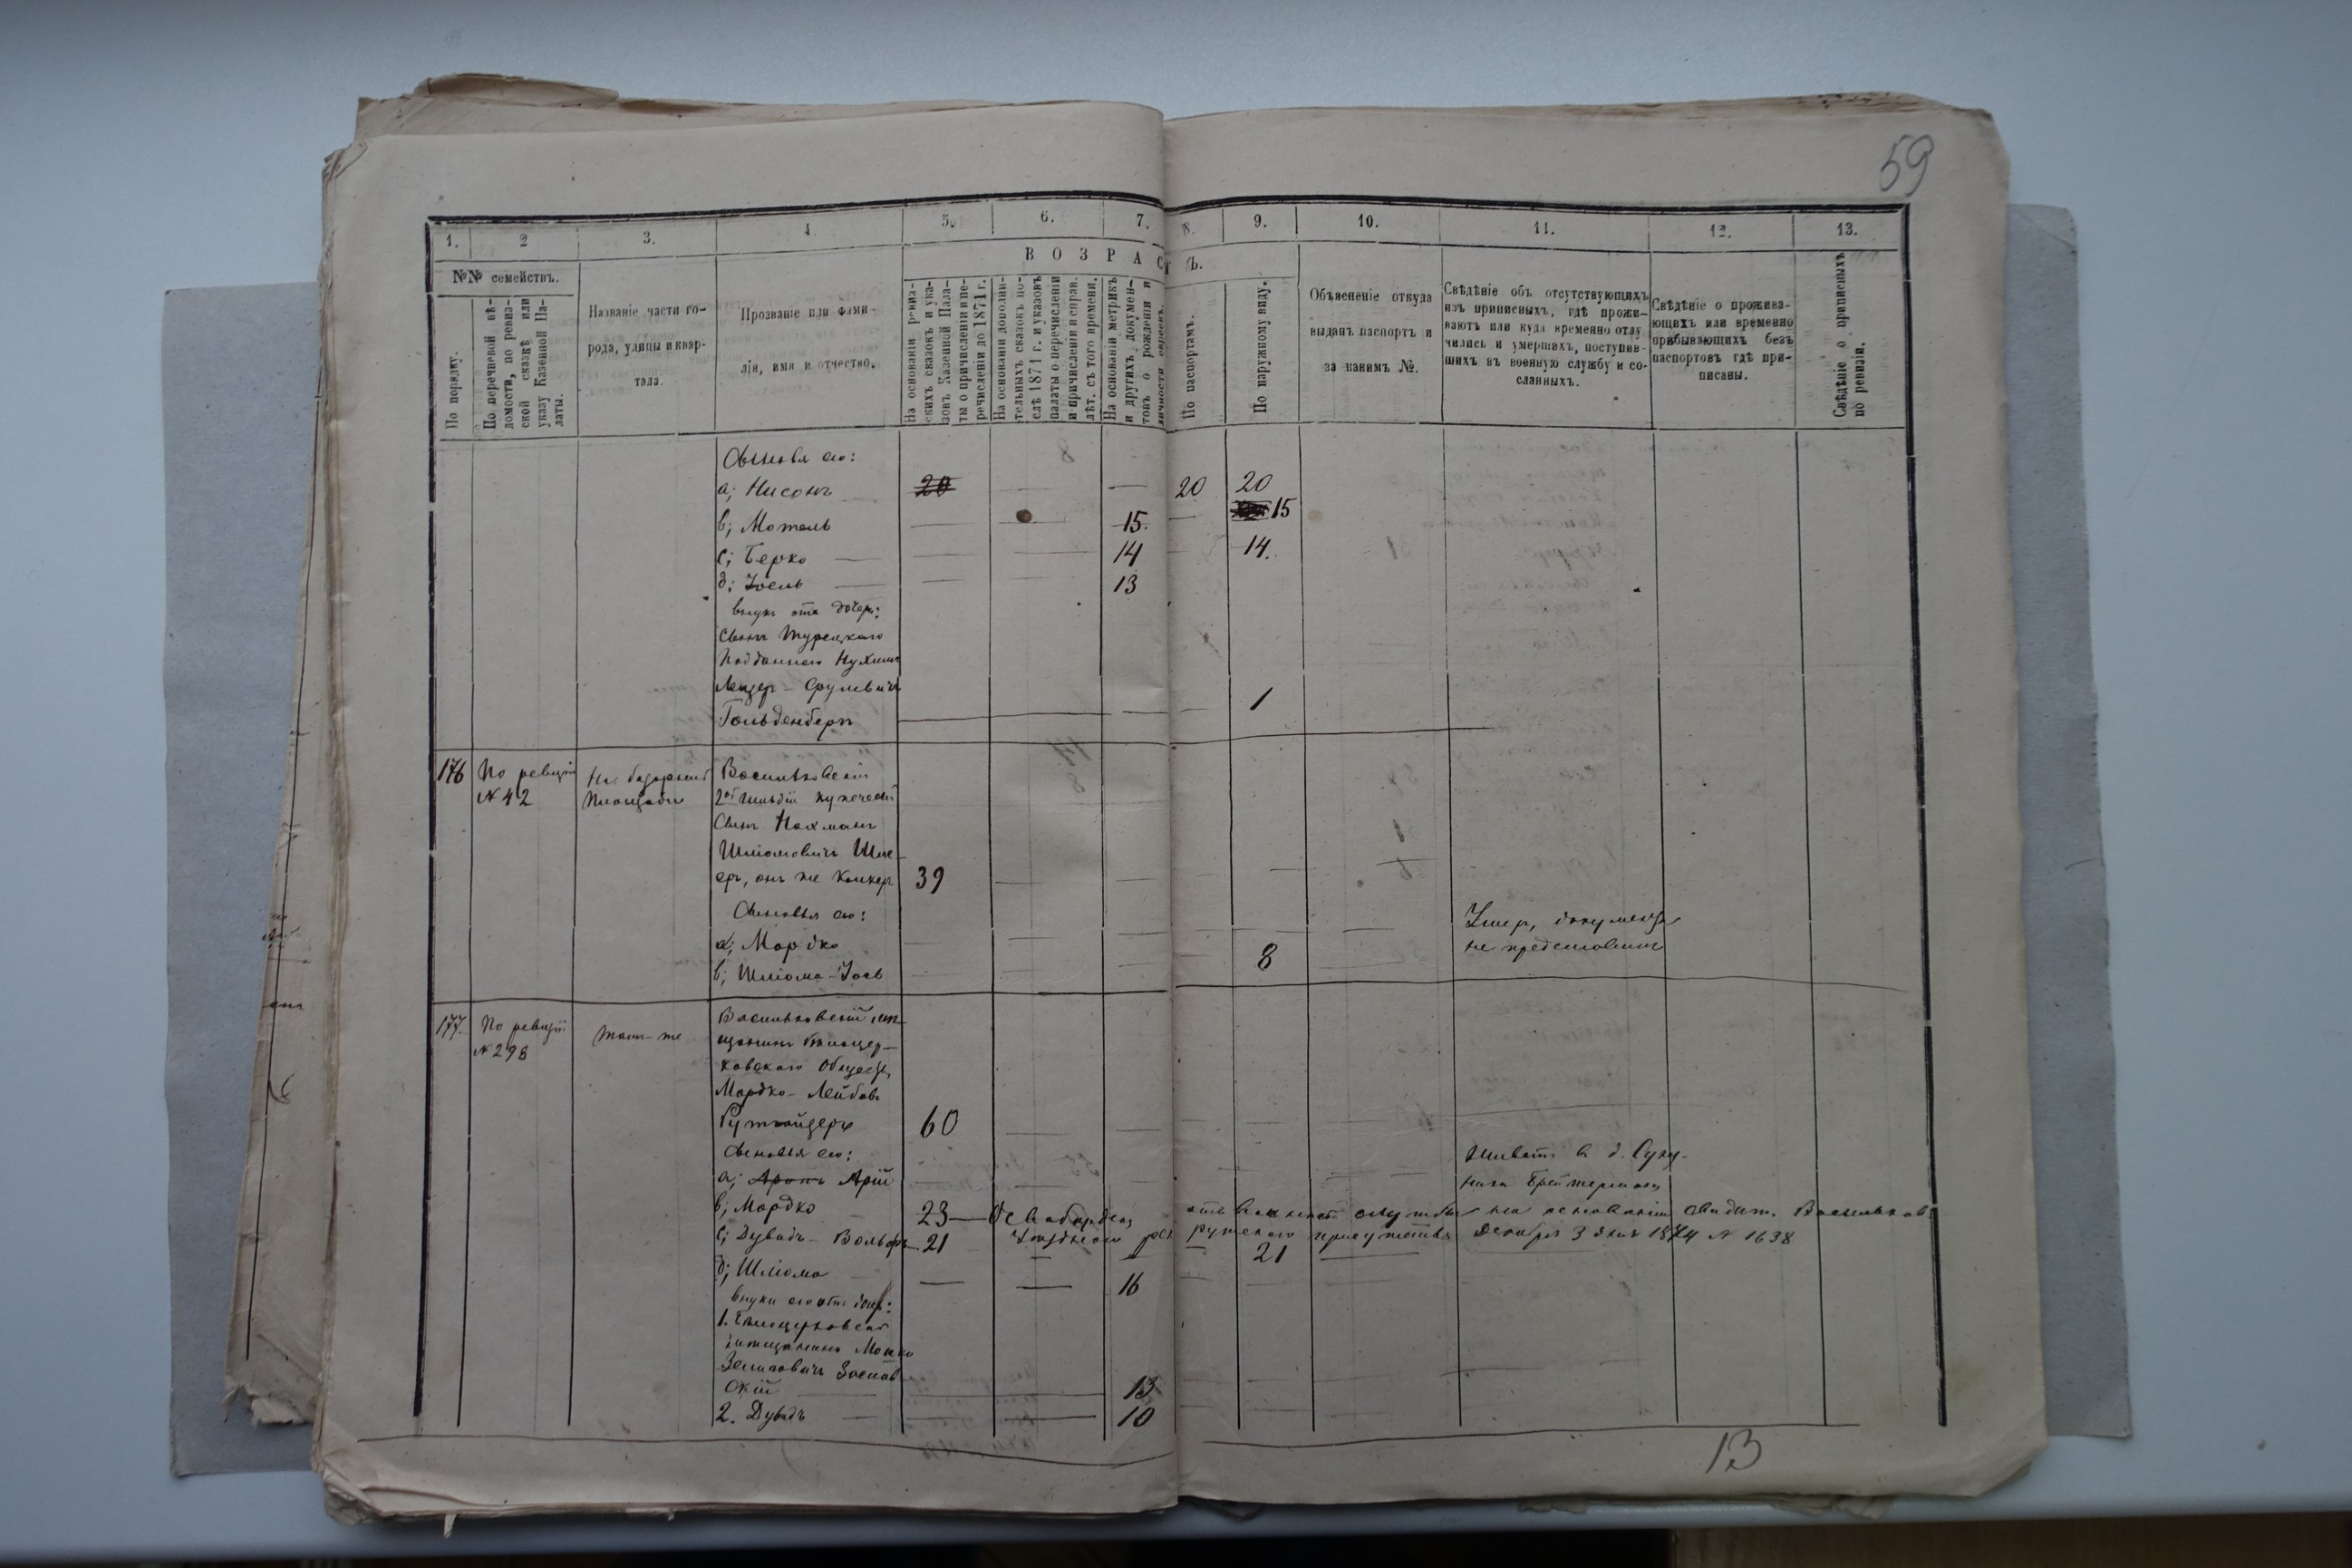 59
1. 2 3. 4. 5. 6. 7. 8. 9. 10. 11. 12. 13.
ВОЗРАСТЪ.
№№ семействъ.
По порядку.
По перечневой вѣ-
домости, по ревиз-
ской сказкѣ или
указу Казенной Па-
латы.
Названіе части го-
рода, улицы и квар-
тала.
Прозваніе или фами-
лія, имя и отчество.
На основаніи ревиз-
скихъ сказокъ и ука-
зовъ Казенной Пала-
ты о причисленіи и пе-
речисленіи до 1871 г.
На основаніи дополни-
тельныхъ сказокъ по-
слѣ 1871 г. и указовъ
палаты о перечисленіи
и причисленіи и справ.
лѣт. съ того времени.
На основаніи метрикъ
и другихъ докумен-
товъ о рожденіи и
личности евреевъ.
По паспортамъ.
По наружному виду.
Объясненіе откуда
выданъ паспортъ и
за какимъ №.
Свѣдѣніе объ отсутствующихъ
изъ приписныхъ, гдѣ прожи-
ваютъ или куда временно отлу
чились и умершихъ, поступив-
шихъ въ военную службу и со-
сланныхъ.
Свѣдѣніе о прожива-
ющихъ или временно
прибывающихъ безъ
паспортовъ гдѣ при-
писаны.
Свѣдѣніе о приписныхъ
по ревизіи.
Сыновья его:
а; Нисонъ 20 — — 20 20
b; Мотель — — 15. — 15
с; Берко — — — 14 — 14.
д; Іосель — — 13
внукъ отъ дочери:
сынъ Турецкаго
подданнаго Нухимъ
Лейзеръ - Срулевичъ
Гольденбергъ — — — — 1
176 По ревизіи На базарной Васильковскій
№ 42 Площади 2ой Гильдіи купеческій
сынъ Нахманъ
Шліомовичъ Шме-
еръ, онъ же 39 — — —
Сыновья его:
а; Мордко — — — — Умеръ, документа
не представилъ
b; Шліома-Іось — — — — 8
177. По ревизіи Тамъ-же Васильковскій мѣ-
№ 298 щанинъ Бѣлоцер-
ковскаго Общества
Мордко- Лейбовъ
60 — — —
Сыновья его:
а; Аронъ Арій — — Живетъ въ д.
b; Мордко 23 — Освобожденъ отъ воинской службы на основаніи свидѣт. Васильков.
с; Дувидъ- Вольфъ 21 Уѣзднаго рекрутскаго присутствія Декабря 3 дня 1874 № 1638
— — 21 —
д; Шліома — — 16
внуки его отъ дочери:
1. Бѣлоцерковскій
мѣщанинъ Мошко
Зелиговичъ Заслав
скій — — 13
2. Дувидъ — — — 10
13